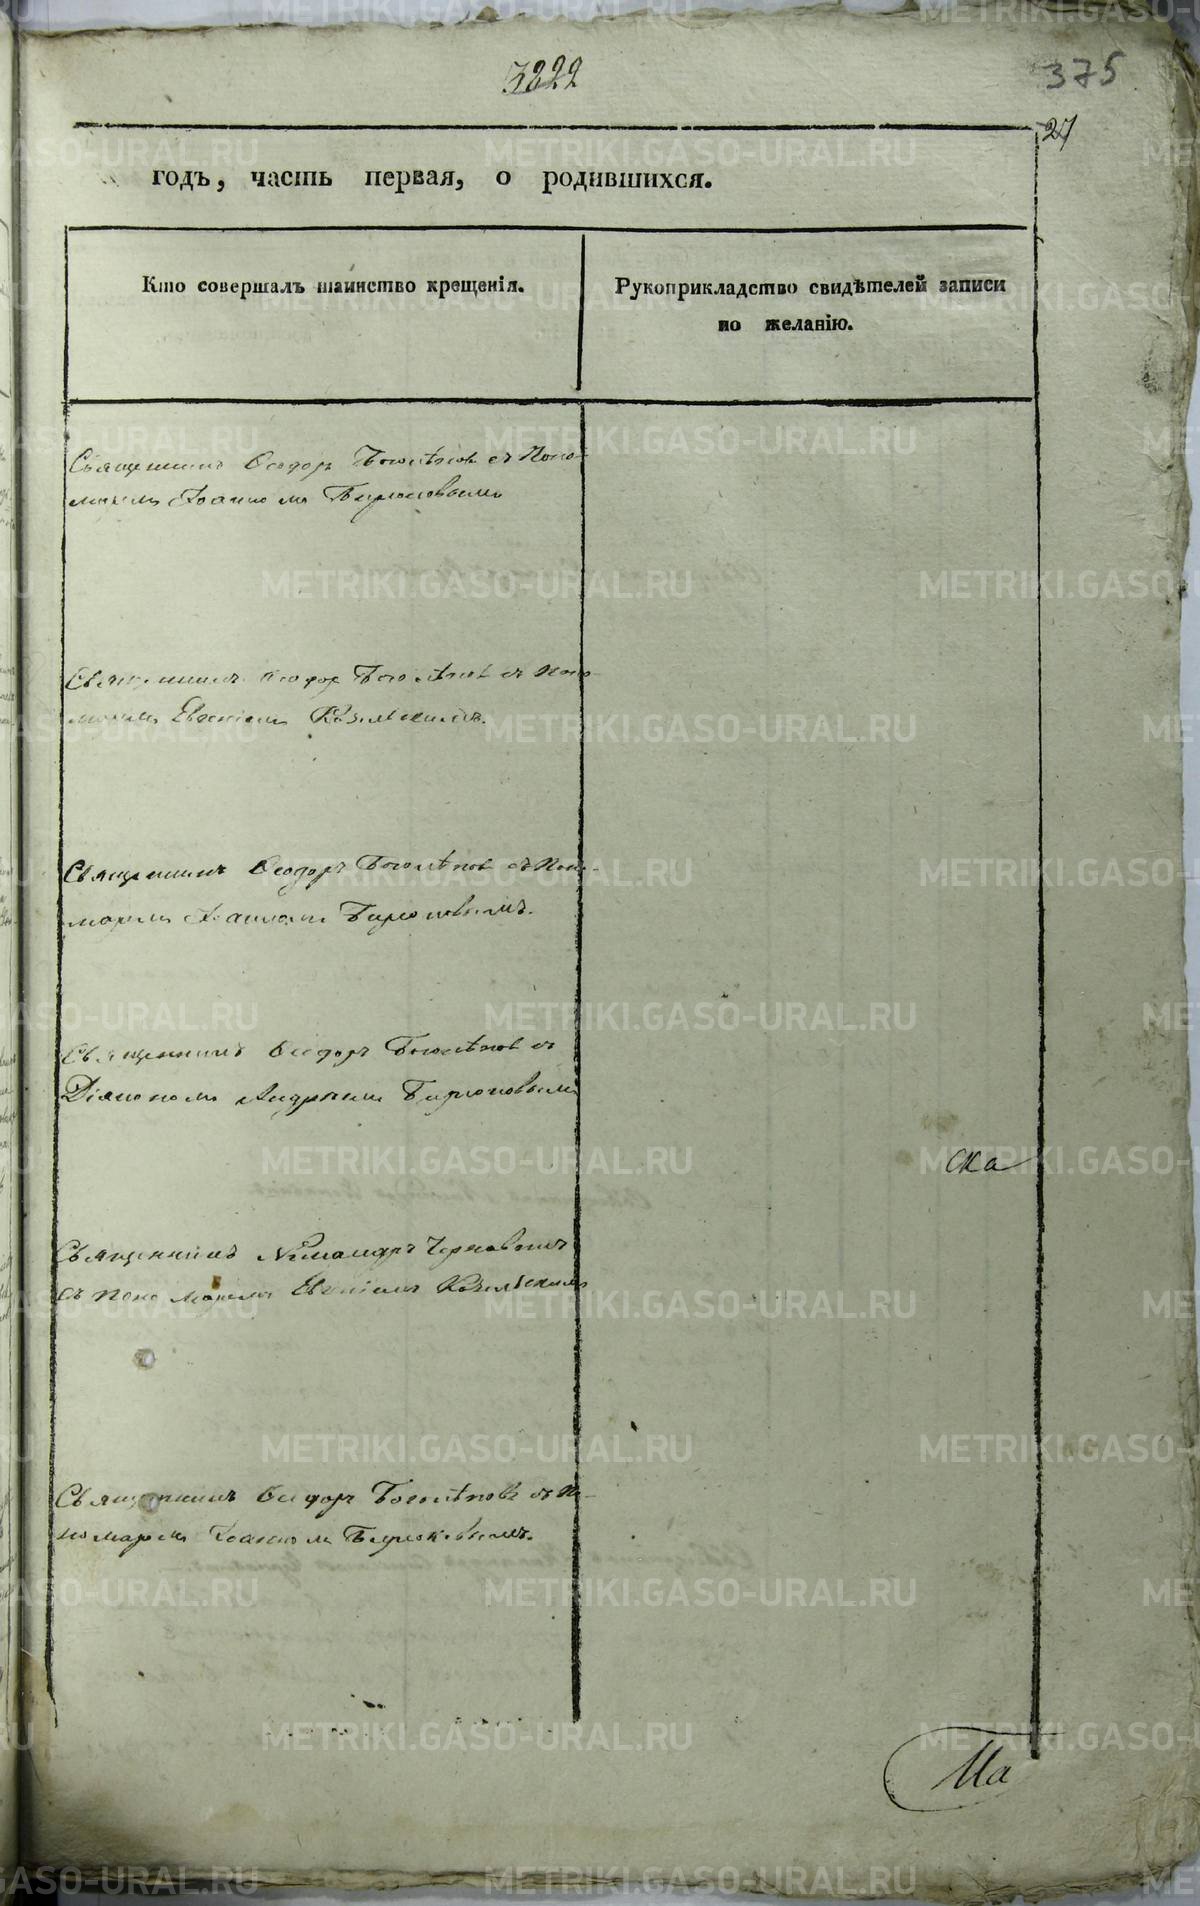 3222
375
27
годъ, часть первая, о родившихся.
Кто совершалъ таинство крещенія.
Рукоприкладство свидѣтелей записи
по желанію.
Священникъ Ѳеодоръ Боголѣпов съ Поно-
марем Іоанном Бирюковым
Священникъ Ѳеодор Боголѣпов съ Поно
марем Евгеніем Козельскимъ.
Священникъ Ѳеодоръ Боголѣпов съ Поно-
марем Іоанном Бирюковымъ.
Священникъ Ѳеодоръ Боголѣпов съ
Діяконом Андреем Бирюковым
ска
Священникъ Никандръ
съ пономарем Евгеніем Козельским
Священникъ Ѳеодоръ Боголѣповъ съ По-
номарем Іоанном Бирюковымъ.
Ма
METRIKI.GASO-URAL.RU